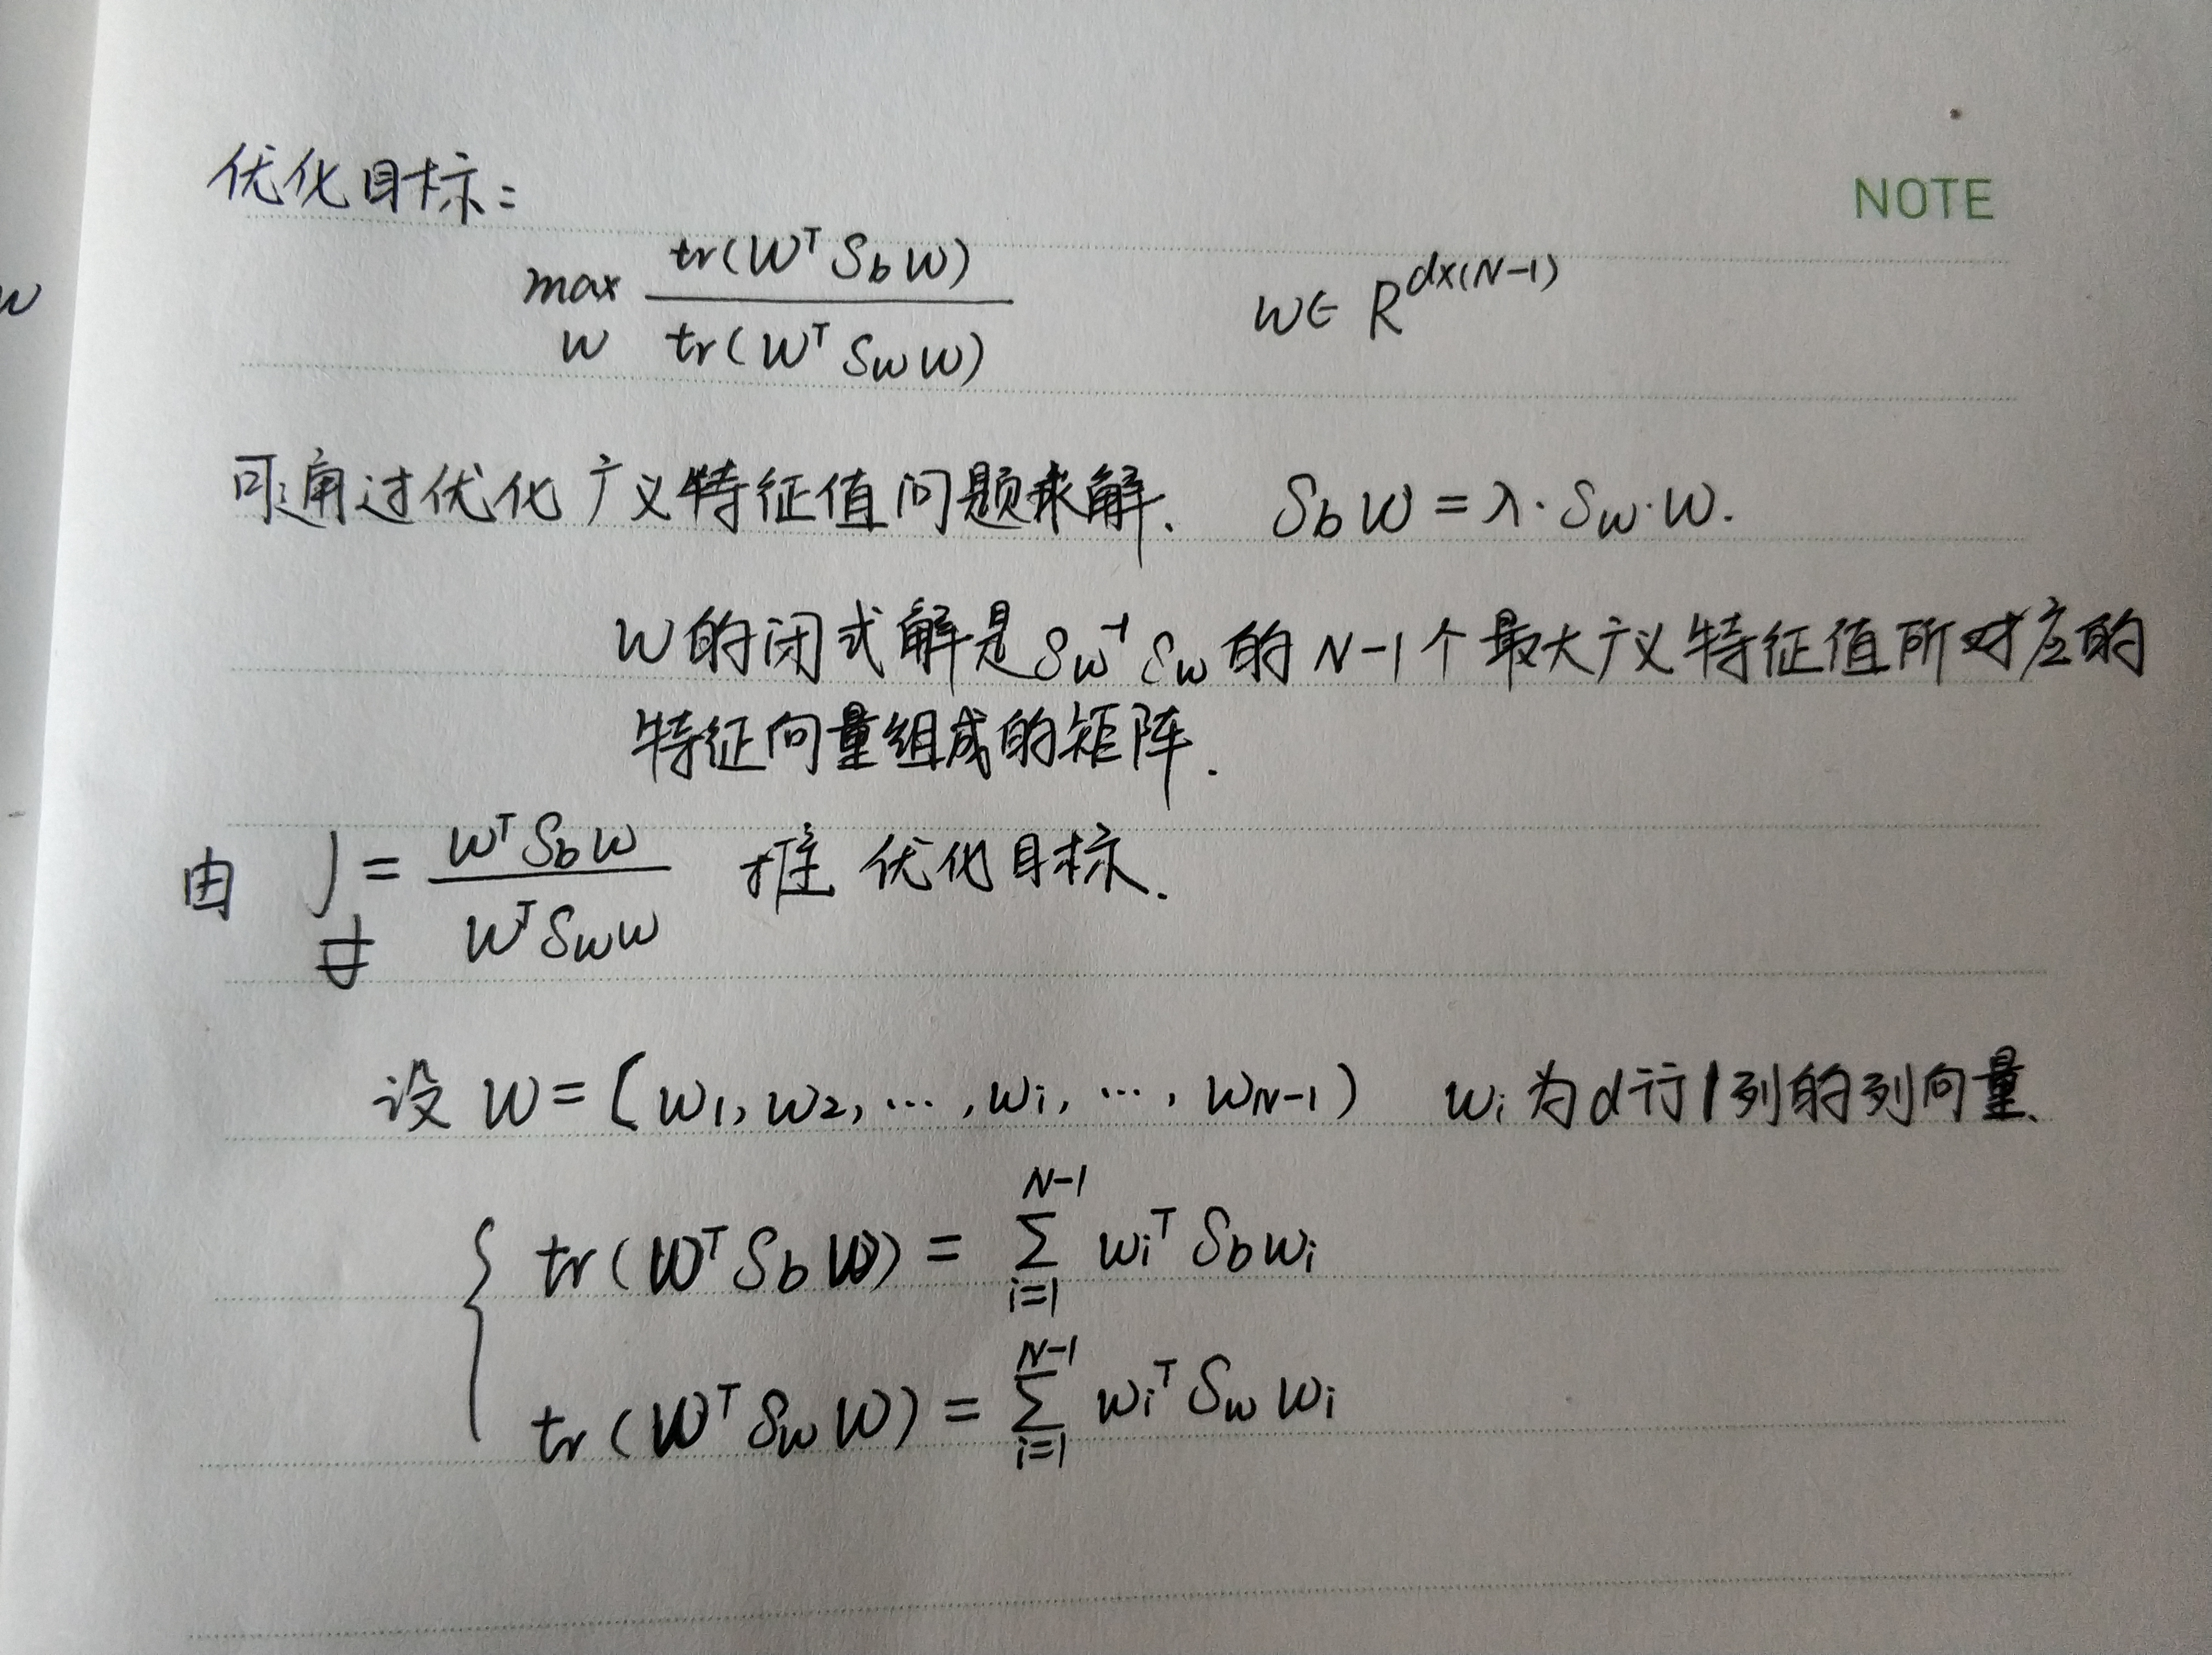 优化目标:
NOTE
max_W tr(W^T S_b W) / tr(W^T S_w W)    W∈ R^{d×(N-1)}
w
可通过优化广义特征值问题求解. S_b W = λ·S_w·W.
W的闭式解是 S_w^{-1} S_w 的 N-1个最大广义特征值所对应的
特征向量组成的矩阵.
由 J = W^T S_b W / W^T S_w W 推 优化目标.
设 W = (w_1, w_2, …, w_i, …, w_{N-1}) w_i 为d行1列的列向量.
tr(W^T S_b W) = Σ_{i=1}^{N-1} w_i^T S_b w_i
tr(W^T S_w W) = Σ_{i=1}^{N-1} w_i^T S_w w_i